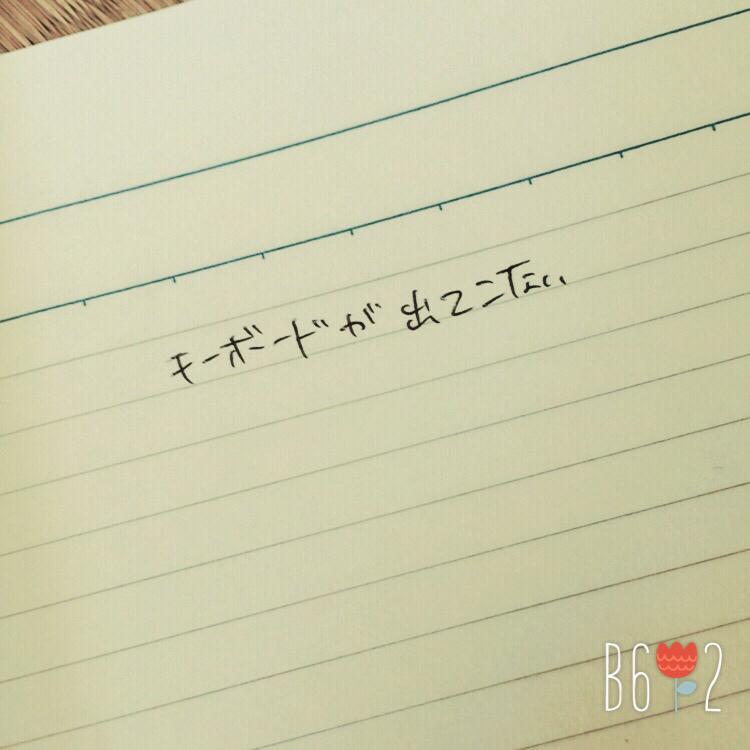 キーボードが出てこない
B612